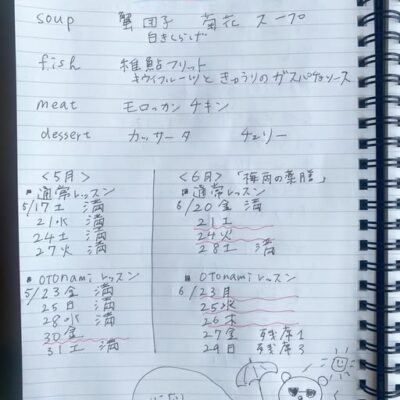 soup 蟹団子 菊花 スープ
白きくらげ
fish 稚鮎フリット
キウイフルーツと きゅうりの ガスパチョソース
meat モロッカン チキン
dessert カッサータ チェリー
<5月>
■通常レッスン
5/17土 満
21水 満
24土 満
27火 満
■otonamiレッスン
5/23金 満
25日 満
28水 満
30金
31土 満
<6月>「梅雨の薬膳」
■通常レッスン
6/20金 満
21土
24火
28土 満
■otonamiレッスン
6/23月
25水
26木
27金 残席1
29日 残席3